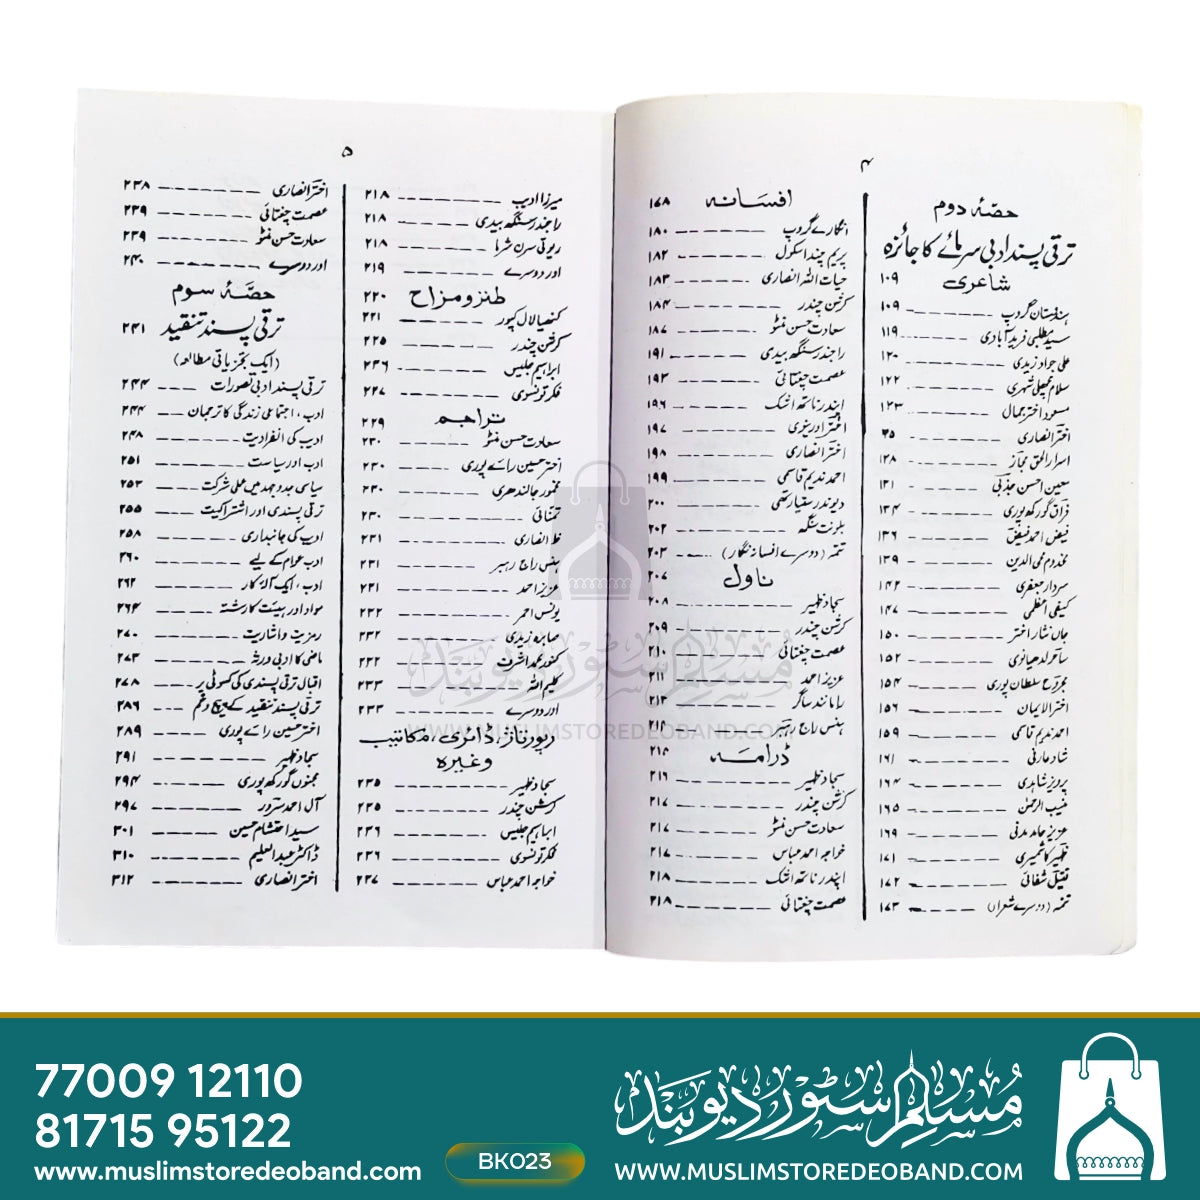 ۴
حصۂ دوم
ترقی پسند ادبی سرمائے کا جائزہ
شاعری ۱۰۹
ہندوستان گروپ ۱۰۹
سید مطلبی فریدآبادی ۱۱۹
علی جواد زیدی ۱۲۰
سلام مچھلی شہری ۱۲۲
مسعود اختر جمال ۱۲۳
اختر انصاری
اسرار الحق مجاز ۱۲۸
معین احسن جذبی ۱۳۱
فراق گورکھ پوری ۱۳۴
فیض احمد فیض ۱۳۶
مخدوم محی الدین ۱۳۹
سردار جعفری ۱۴۲
کیفی اعظمی ۱۴۷
جاں نثار اختر ۱۵۰
ساحر لدھیانوی ۱۵۲
مجروح سلطان پوری ۱۵۴
اختر الایمان ۱۵۶
احمد ندیم قاسمی ۱۵۹
شاد عارفی ۱۶۱
پرویز شاہدی ۱۶۴
منیب الرحمٰن ۱۶۵
عزیز حامد مدنی ۱۶۹
ظہیر کاشمیری ۱۷۱
قتیل شفائی ۱۷۲
تتمہ (دوسرے شعراء) ۱۷۳
افسانہ ۱۷۸
انگارے گروپ ۱۸۰
پریم چند اسکول ۱۸۲
حیات اللہ انصاری ۱۸۳
کرشن چندر ۱۸۴
سعادت حسن منٹو ۱۸۷
راجندر سنگھ بیدی ۱۹۱
عصمت چغتائی ۱۹۳
اپندر ناتھ اشک ۱۹۶
اختر اورینوی ۱۹۷
اختر انصاری ۱۹۸
احمد ندیم قاسمی ۱۹۹
دیوندر ستیارتھی ۲۰۰
بلونت سنگھ ۲۰۲
تتمہ (دوسرے افسانہ نگار) ۲۰۳
ناول ۲۰۷
سجاد ظہیر ۲۰۸
کرشن چندر ۲۰۹
عصمت چغتائی ۲۱۰
عزیز احمد ۲۱۱
رامانند ساگر ۲۱۳
ہنس راج رہبر ۲۱۴
ڈرامہ ۲۱۵
سجاد ظہیر ۲۱۶
کرشن چندر ۲۱۷
سعادت حسن منٹو ۲۱۷
خواجہ احمد عباس ۲۱۷
اپندر ناتھ اشک ۲۱۸
عصمت چغتائی ۲۱۸
۵
میرزا ادیب ۲۱۸
راجندر سنگھ بیدی ۲۱۸
ریوتی سرن شرما ۲۱۸
اور دوسرے ۲۱۹
طنز و مزاح ۲۲۰
کنھیا لال کپور ۲۲۱
کرشن چندر ۲۲۵
ابراہیم جلیس ۲۲۶
فکر تونسوی ۲۲۷
تراجم ۲۲۹
سعادت حسن منٹو ۲۳۰
اختر حسین رائے پوری ۲۳۰
مخمور جالندھری ۲۳۰
تمنائی ۲۳۰
ظ انصاری ۲۳۱
ہنس راج رہبر ۲۳۱
عزیز احمد ۲۳۱
یونس احمر ۲۳۲
صابرہ زیدی ۲۳۲
کنور محمد اشرف ۲۳۲
کلیم اللہ ۲۳۳
اور دوسرے ۲۳۳
رپورتاژ، ڈائری، مکاتیب
وغیرہ
سجاد ظہیر ۲۳۵
کرشن چندر ۲۳۵
ابراہیم جلیس ۲۳۶
فکر تونسوی ۲۳۶
خواجہ احمد عباس ۲۳۷
اختر انصاری ۲۳۸
عصمت چغتائی ۲۳۹
سعادت حسن منٹو ۲۳۹
اور دوسرے ۲۴۰
حصۂ سوم
ترقی پسند تنقید ۲۴۱
(ایک تجزیاتی مطالعہ)
ترقی پسند ادبی تصورات ۲۴۴
ادب، اجتماعی زندگی کا ترجمان ۲۴۴
ادیب کی انفرادیت ۲۴۸
ادب اور سیاست ۲۵۱
سیاسی جدوجہد میں عملی شرکت ۲۵۳
ترقی پسندی اور اشتراکیت ۲۵۵
ادب کی جانبداری ۲۵۸
ادب عوام کے لیے ۲۶۰
ادب، ایک آلۂ کار ۲۶۲
مواد اور ہیئت کا رشتہ ۲۶۴
رمزیت و اشاریت ۲۷۰
ماضی کا ادبی ورثہ ۲۷۳
اقبال ترقی پسندی کی کسوٹی پر ۲۷۸
ترقی پسند تنقید کے پیچ و خم ۲۸۶
اختر حسین رائے پوری ۲۸۹
سجاد ظہیر ۲۹۱
مجنوں گورکھ پوری ۲۹۴
آل احمد سرور ۲۹۷
سید احتشام حسین ۳۰۱
ڈاکٹر عبدالعلیم ۳۱۰
اختر انصاری ۳۱۲
مسلم سٹور دیوبند
WWW.MUSLIMSTOREDEOBAND.COM
77009 12110
81715 95122
www.muslimstoredeoband.com
BK023
مسلم سٹور دیوبند
WWW.MUSLIMSTOREDEOBAND.COM